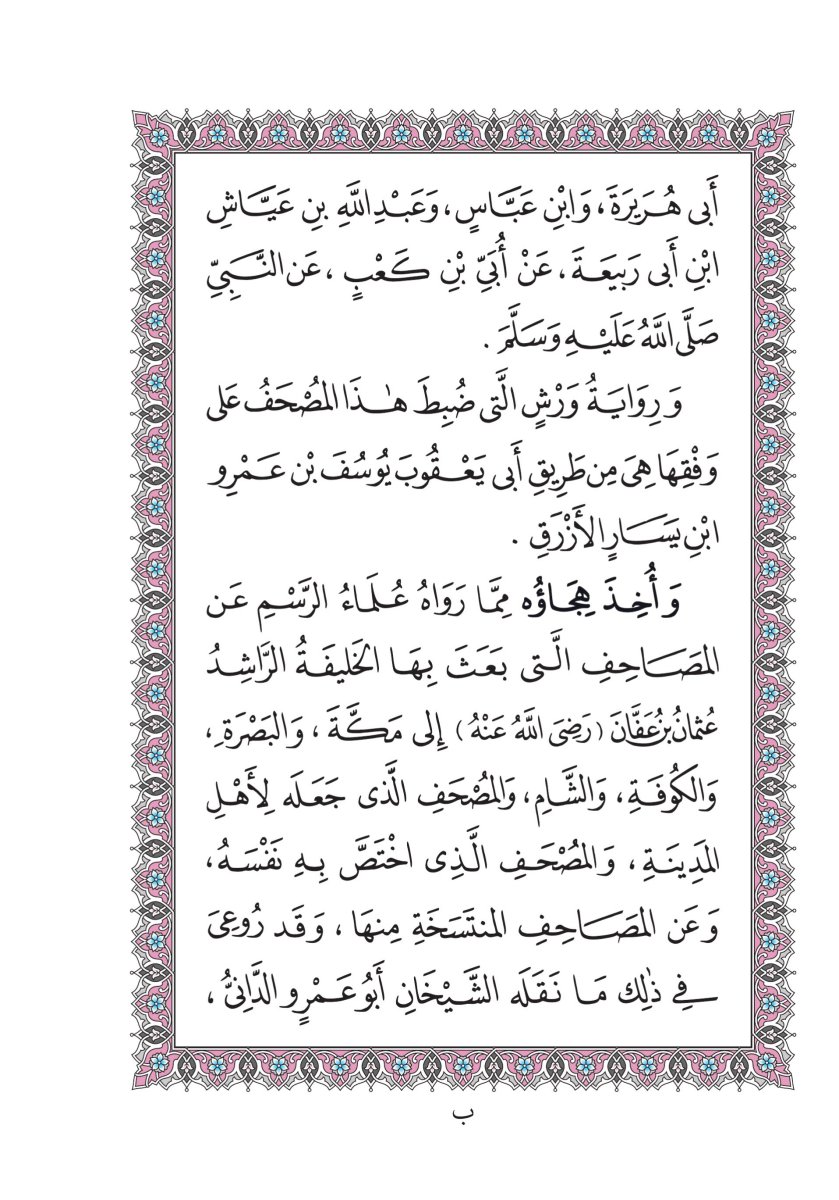 أَبِى هُرَيْرَةَ، وَابْنِ عَبَّاسٍ، وَعَبْدِ اللَّهِ بنِ عَيَّاشِ
ابْنِ أَبى رَبِيعَةَ، عَنْ أُبَيِّ بْنِ كَعْبٍ، عَنِ النَّبِيِّ
صَلَّى اللَّهُ عَلَيْهِ وَسَلَّمَ.
وَرِوَايَةُ وَرْشٍ الَّتى ضُبِطَ هٰذَا المُصْحَفُ عَلى
وَفْقِهَا هِىَ مِن طَرِيقِ أَبى يَعْقُوبَ يُوسُفَ بْن عَمْرِو
ابْنِ يَسَارٍ الأَزْرَقِ.
وَأُخِذَ هِجَاؤُه مِمَّا رَوَاهُ عُلَمَاءُ الرَّسْمِ عَن
المَصَاحِفِ الَّتى بَعَثَ بِهَا الخَلِيفَةُ الرَّاشِدُ
عُثمانُ بنُ عَفَّانَ (رَضِىَ اللَّهُ عَنْهُ) إِلى مَكَّةَ، وَالبَصْرَةِ،
وَالكُوفَةِ، وَالشَّامِ، وَالمُصْحَفِ الَّذى جَعَلَه لِأَهْلِ
المَدِينَةِ، وَالمُصْحَفِ الَّذِى اخْتَصَّ بِهِ نَفْسَهُ،
وَعَن المَصَاحِفِ المُنتَسَخَةِ مِنهَا، وَقَد رُوعِىَ
فِي ذٰلِك مَا نَقَلَه الشَّيْخَانِ أَبُو عَمْرٍو الدَّانِىُّ،
ب